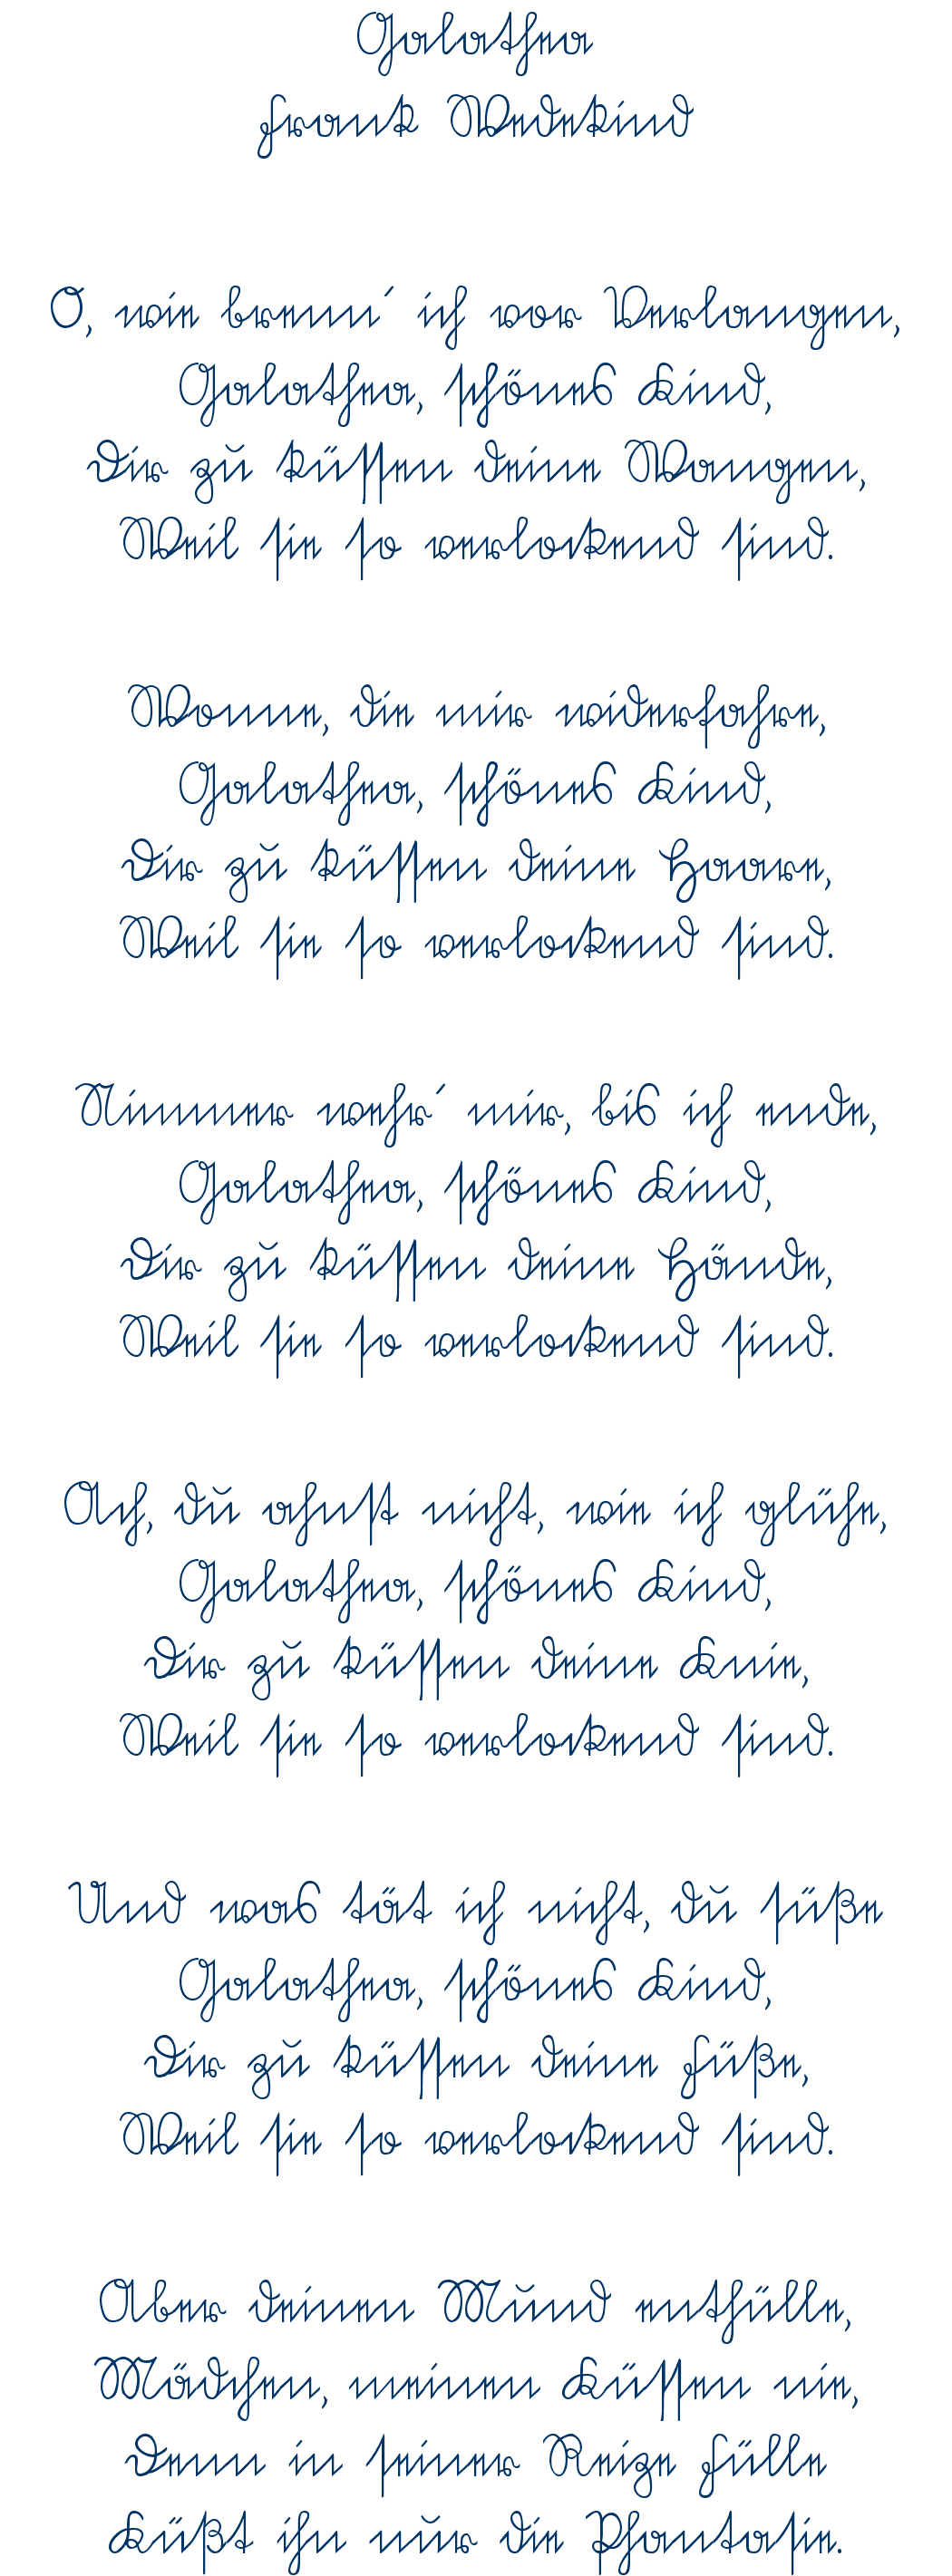 Galathea
Frank Wedekind
O, wie brenn´ ich vor Verlangen,
Galathea, schönes Kind,
Dir zu küssen deine Wangen,
Weil sie so verlockend sind.
Wonne, die mir widerfahre,
Galathea, schönes Kind,
Dir zu küssen deine Haare,
Weil sie so verlockend sind.
Nimmer wehr´ mir, bis ich ende,
Galathea, schönes Kind,
Dir zu küssen deine Hände,
Weil sie so verlockend sind.
Ach, du ahnst nicht, wie ich glühe,
Galathea, schönes Kind,
Dir zu küssen deine Knie,
Weil sie so verlockend sind.
Und was tät ich nicht, du süße
Galathea, schönes Kind,
Dir zu küssen deine Füße,
Weil sie so verlockend sind.
Aber deinen Mund enthülle,
Mädchen, meinen Küssen nie,
Denn in seiner Reize Fülle
Küßt ihn nur die Phantasie.